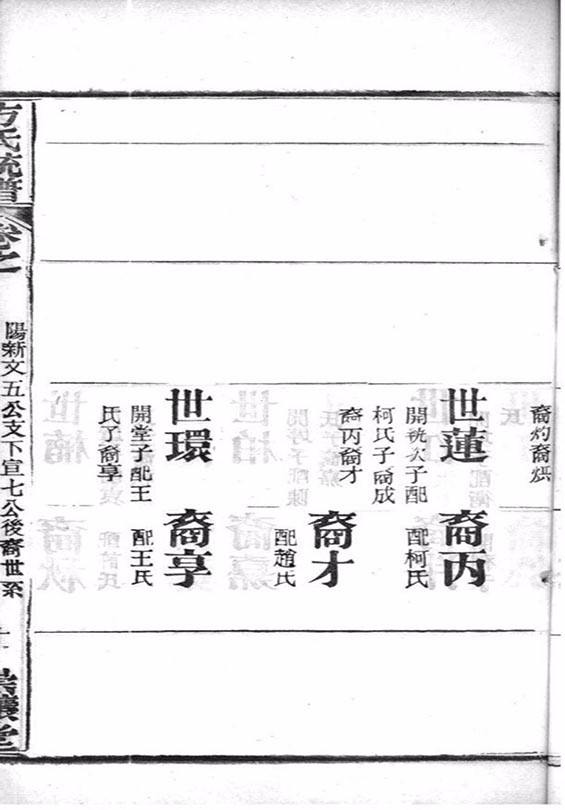 裔灼裔烘
世蓮
開銃次子配
柯氏子裔成
裔丙裔才
裔丙
配柯氏
裔才
配趙氏
世環
開堂子配王
氏子裔享
裔享
配王氏
方氏統譜
卷之
陽新文五公支下宣七公後裔世系